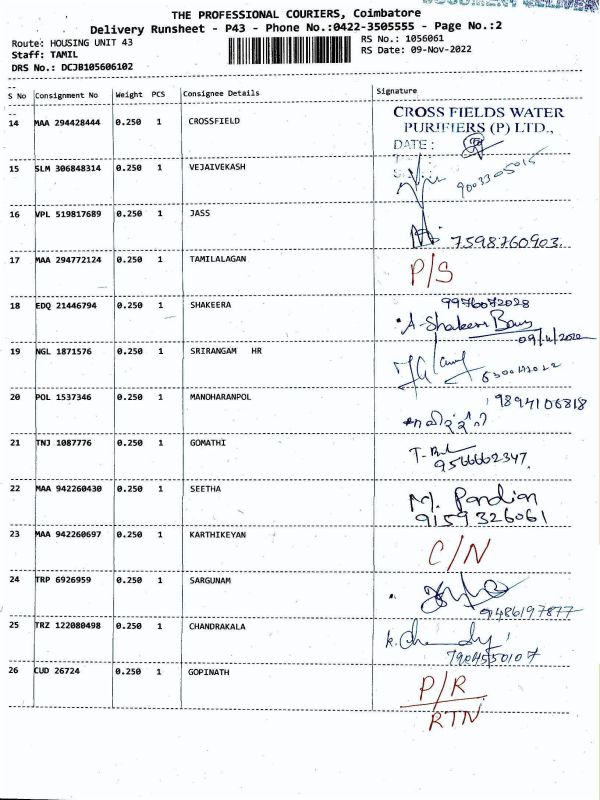 DOCUMENT DELIVER
THE PROFESSIONAL COURIERS, Coimbatore
Delivery Runsheet - P43 - Phone No.:0422-3505555 - Page No.:2
Route: HOUSING UNIT 43 RS No.: 1056061
Staff: TAMIL RS Date: 09-Nov-2022
DRS No.: DCJB105606102
S No Consignment No Weight PCS Consignee Details Signature
14 MAA 294428444 0.250 1 CROSSFIELD CROSS FIELDS WATER
PURIFIERS (P) LTD.,
DATE:
15 SLM 306848314 0.250 1 VEJAIVEKASH 9003305015
16 VPL 519817689 0.250 1 JASS
7598760903.
17 MAA 294772124 0.250 1 TAMILALAGAN P/S
18 EDQ 21446794 0.250 1 SHAKEERA 9976072028
A-Shakeera Banu
19 NGL 1871576 0.250 1 SRIRANGAM HR
20 POL 1537346 0.250 1 MANOHARANPOL 9894106818
21 TNJ 1087776 0.250 1 GOMATHI
9566662347.
22 MAA 942260430 0.250 1 SEETHA M. Pandian
9159326061
23 MAA 942260697 0.250 1 KARTHIKEYAN C/N
24 TRP 6926959 0.250 1 SARGUNAM
9486197877
25 TRZ 122080498 0.250 1 CHANDRAKALA
7904550107
26 CUD 26724 0.250 1 GOPINATH P/R
RTN